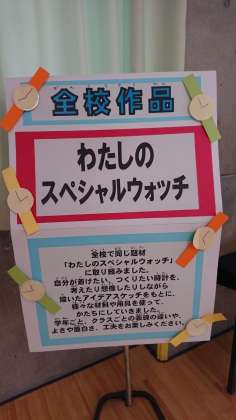 全校作品
わたしの
スペシャルウォッチ
全校で同じ題材
「わたしのスペシャルウォッチ」
に取り組みました。
自分が着けたい、つくりたい時計を、
考えたり想像したりしながら
描いたアイデアスケッチをもとに、
様々な材料や用具を使って、
かたちにしていきました。
学年ごと、クラスごとの表現の違いや、
よさや面白さ、工夫をお楽しみください。